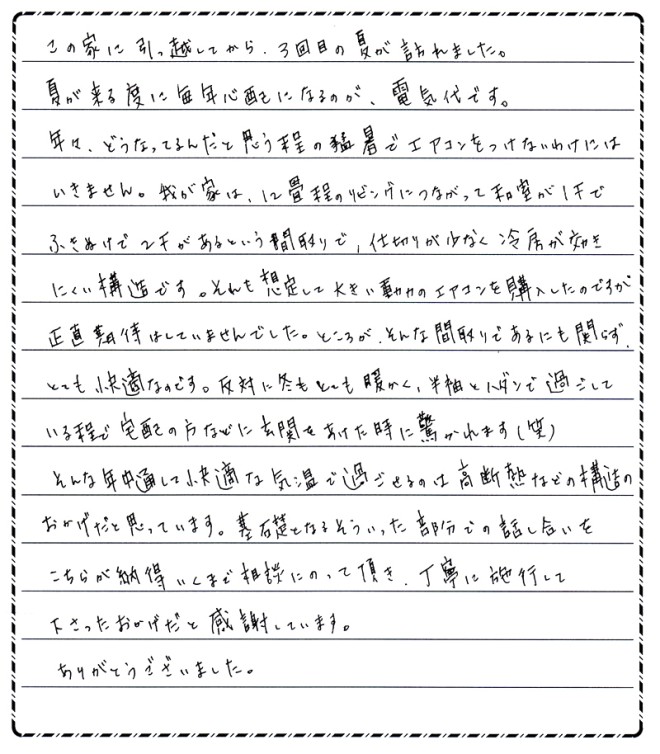 この家に引っ越してから、3回目の夏が訪れました。
夏が来る度に毎年心配になるのが、電気代です。
年々、どうなってるんだと思う程の猛暑でエアコンをつけないわけには
いきません。我が家は、12畳程のリビングにつながって和室があって
ふきぬけで2Fがあるという間取りで、仕切りが少なく冷房が効き
にくい構造です。それを想定して大きい動力のエアコンを購入したのですが
正直期待はしていませんでした。ところが、そんな間取りであるにも関らず、
とても快適なのです。反対に冬もとても暖かく、半袖とハダシで過ごして
いる程で宅配の方などに玄関をあけた時に驚かれます(笑)
そんな年中通して快適な気温で過ごせるのは高断熱などの構造の
おかげだと思っています。基礎となるそういった部分での話し合いを
こちらが納得いくまで相談にのって頂き、丁寧に施行して
下さったおかげだと感謝しています。
ありがとうございました。